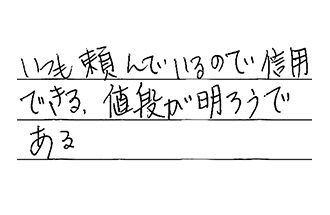 いつも頼んでいるので信用
できる、値段が明ろうで
ある